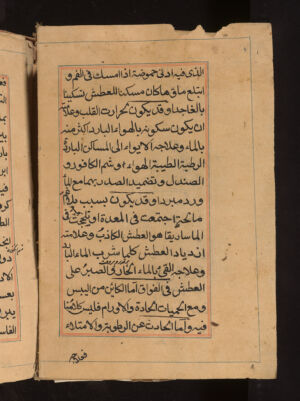 الذى فيه ادنى حموضة اذا امسك فى الفم و
ابتلع ماؤه كان مسكنا للعطش تسكينا
بالغا جدا وقد يكون بحرارت القلب وعلامته
ان يكون سكونه بالهواء البارد اكثر منه
بالماء وعلاجه الايواء الى المساكن الباردة
الرطبة الطيبة الهواء وشم الكافور و
الصندل وتضميد الصدر بهما مع الماء
ورد مبرد او قد يكون بسبب بلاغم
مالحة اجتمعت فى المعدة
وهو العطش الكاذب وعلامته
ازدياد العطش كلما شرب الماء البارد
وعلاجه القى بالماء الحار والصبر على
العطش فى الفواق اما الكائن من اليبس
ومع الحميات الحادة والاورام فليس كلامنا
فيه واما الحادث عن الرطوبة والامتلاء